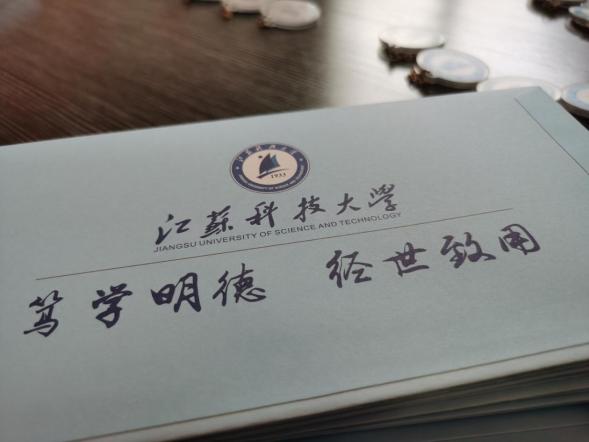 1933
江蘇科技大學
JIANGSU UNIVERSITY OF SCIENCE AND TECHNOLOGY
笃学明德 经世致用